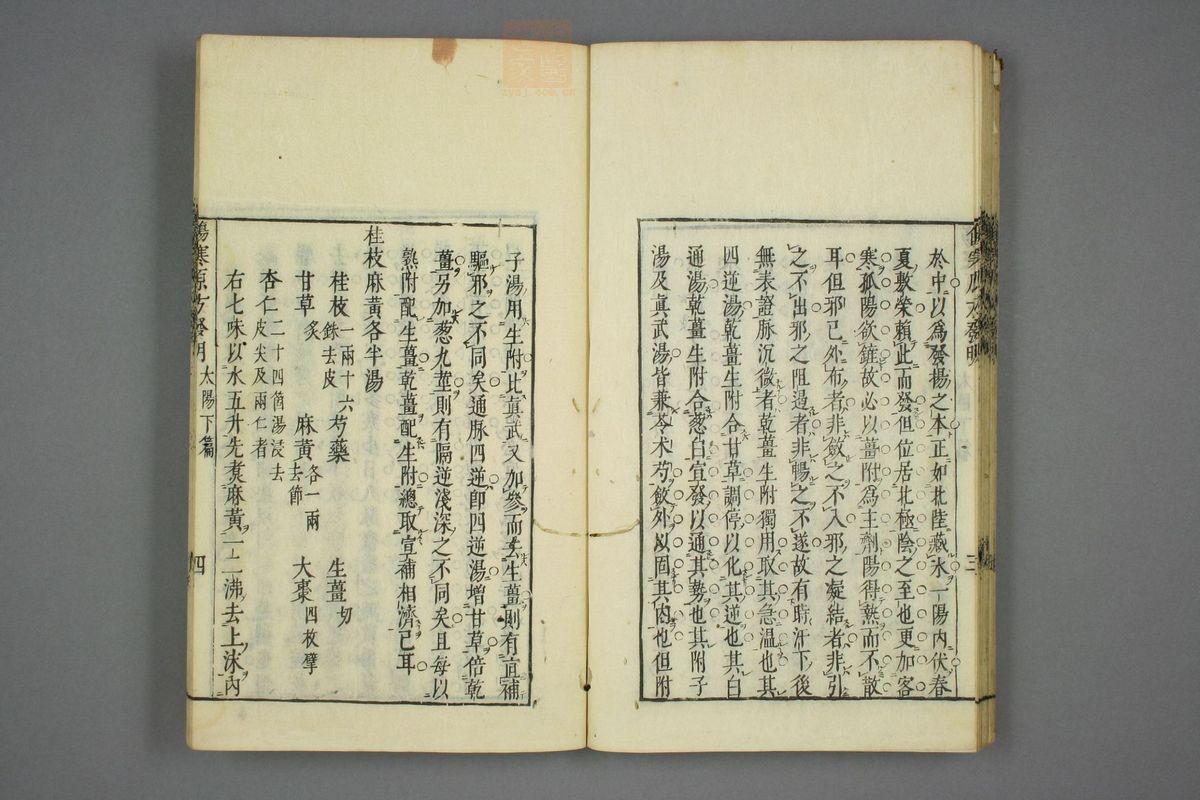 於中以為發揚之本正如北陸藏冰一陽內伏春
夏敷榮賴此而發但位居北極陰之至也更加客
寒孤陽欲鏟故必以薑附為主劑陽得熱而不散
耳但邪已外布者非斂之不入邪之凝結者非引
之不出邪之阻遏者非暢之不遂故有時汗下後
無表證脈沉微者乾薑生附獨用取其急溫也其
四逆湯乾薑生附合甘草調停以化其逆也其白
通湯乾薑生附合葱白宣發以通其勢也其附子
湯及眞武湯皆兼苓术芍斂外以固其內也但附
三
子湯用生附比眞武又加參而去生薑則有宜補
驅邪之不同矣通脈四逆卽四逆湯增甘草倍乾
薑另加葱九莖則有隔逆淺深之不同矣且每以
熟附配生薑乾薑配生附總取宣補相濟已耳
桂枝麻黃各半湯
桂枝一兩十六銖去皮 芍藥 生薑切
甘草炙 麻黃各一兩去節 大棗四枚擘
杏仁二十四箇湯浸去皮尖及兩仁者
右七味以水五升先煑麻黃一二沸去上沫內
傷寒原方發明 太陽下篇 四
zysj.com.cn